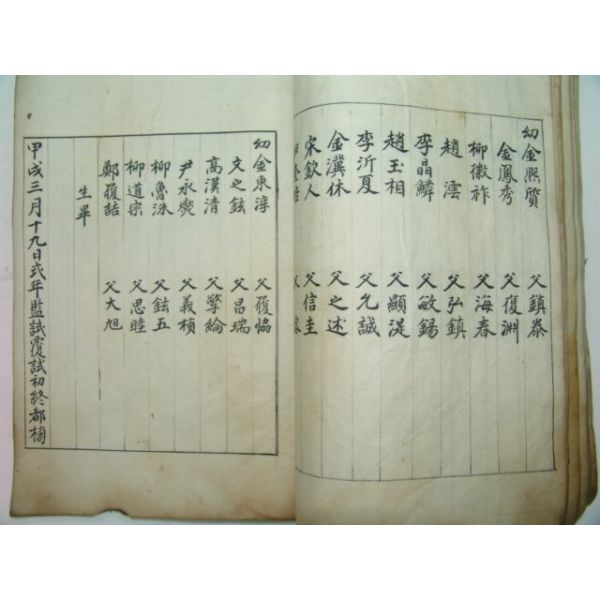 幼金熙質 父鎮泰
金鳳秀 父復淵
柳徽祚 父海春
趙澐 父弘鎮
李晶鱗 父敏錫
趙玉相 父顯湜
李沂夏 父允誠
金瀵休 父之述
宋欽人 父信圭
幼金東淳 父履恊
文之鉉 父昌瑞
高漢清 父擎綸
尹永爕 父義楨
柳魯洙 父鉉五
柳道宗 父思睦
鄭履喆 父大旭
生畢
甲戌三月十九日式年監試覆試初終都榜